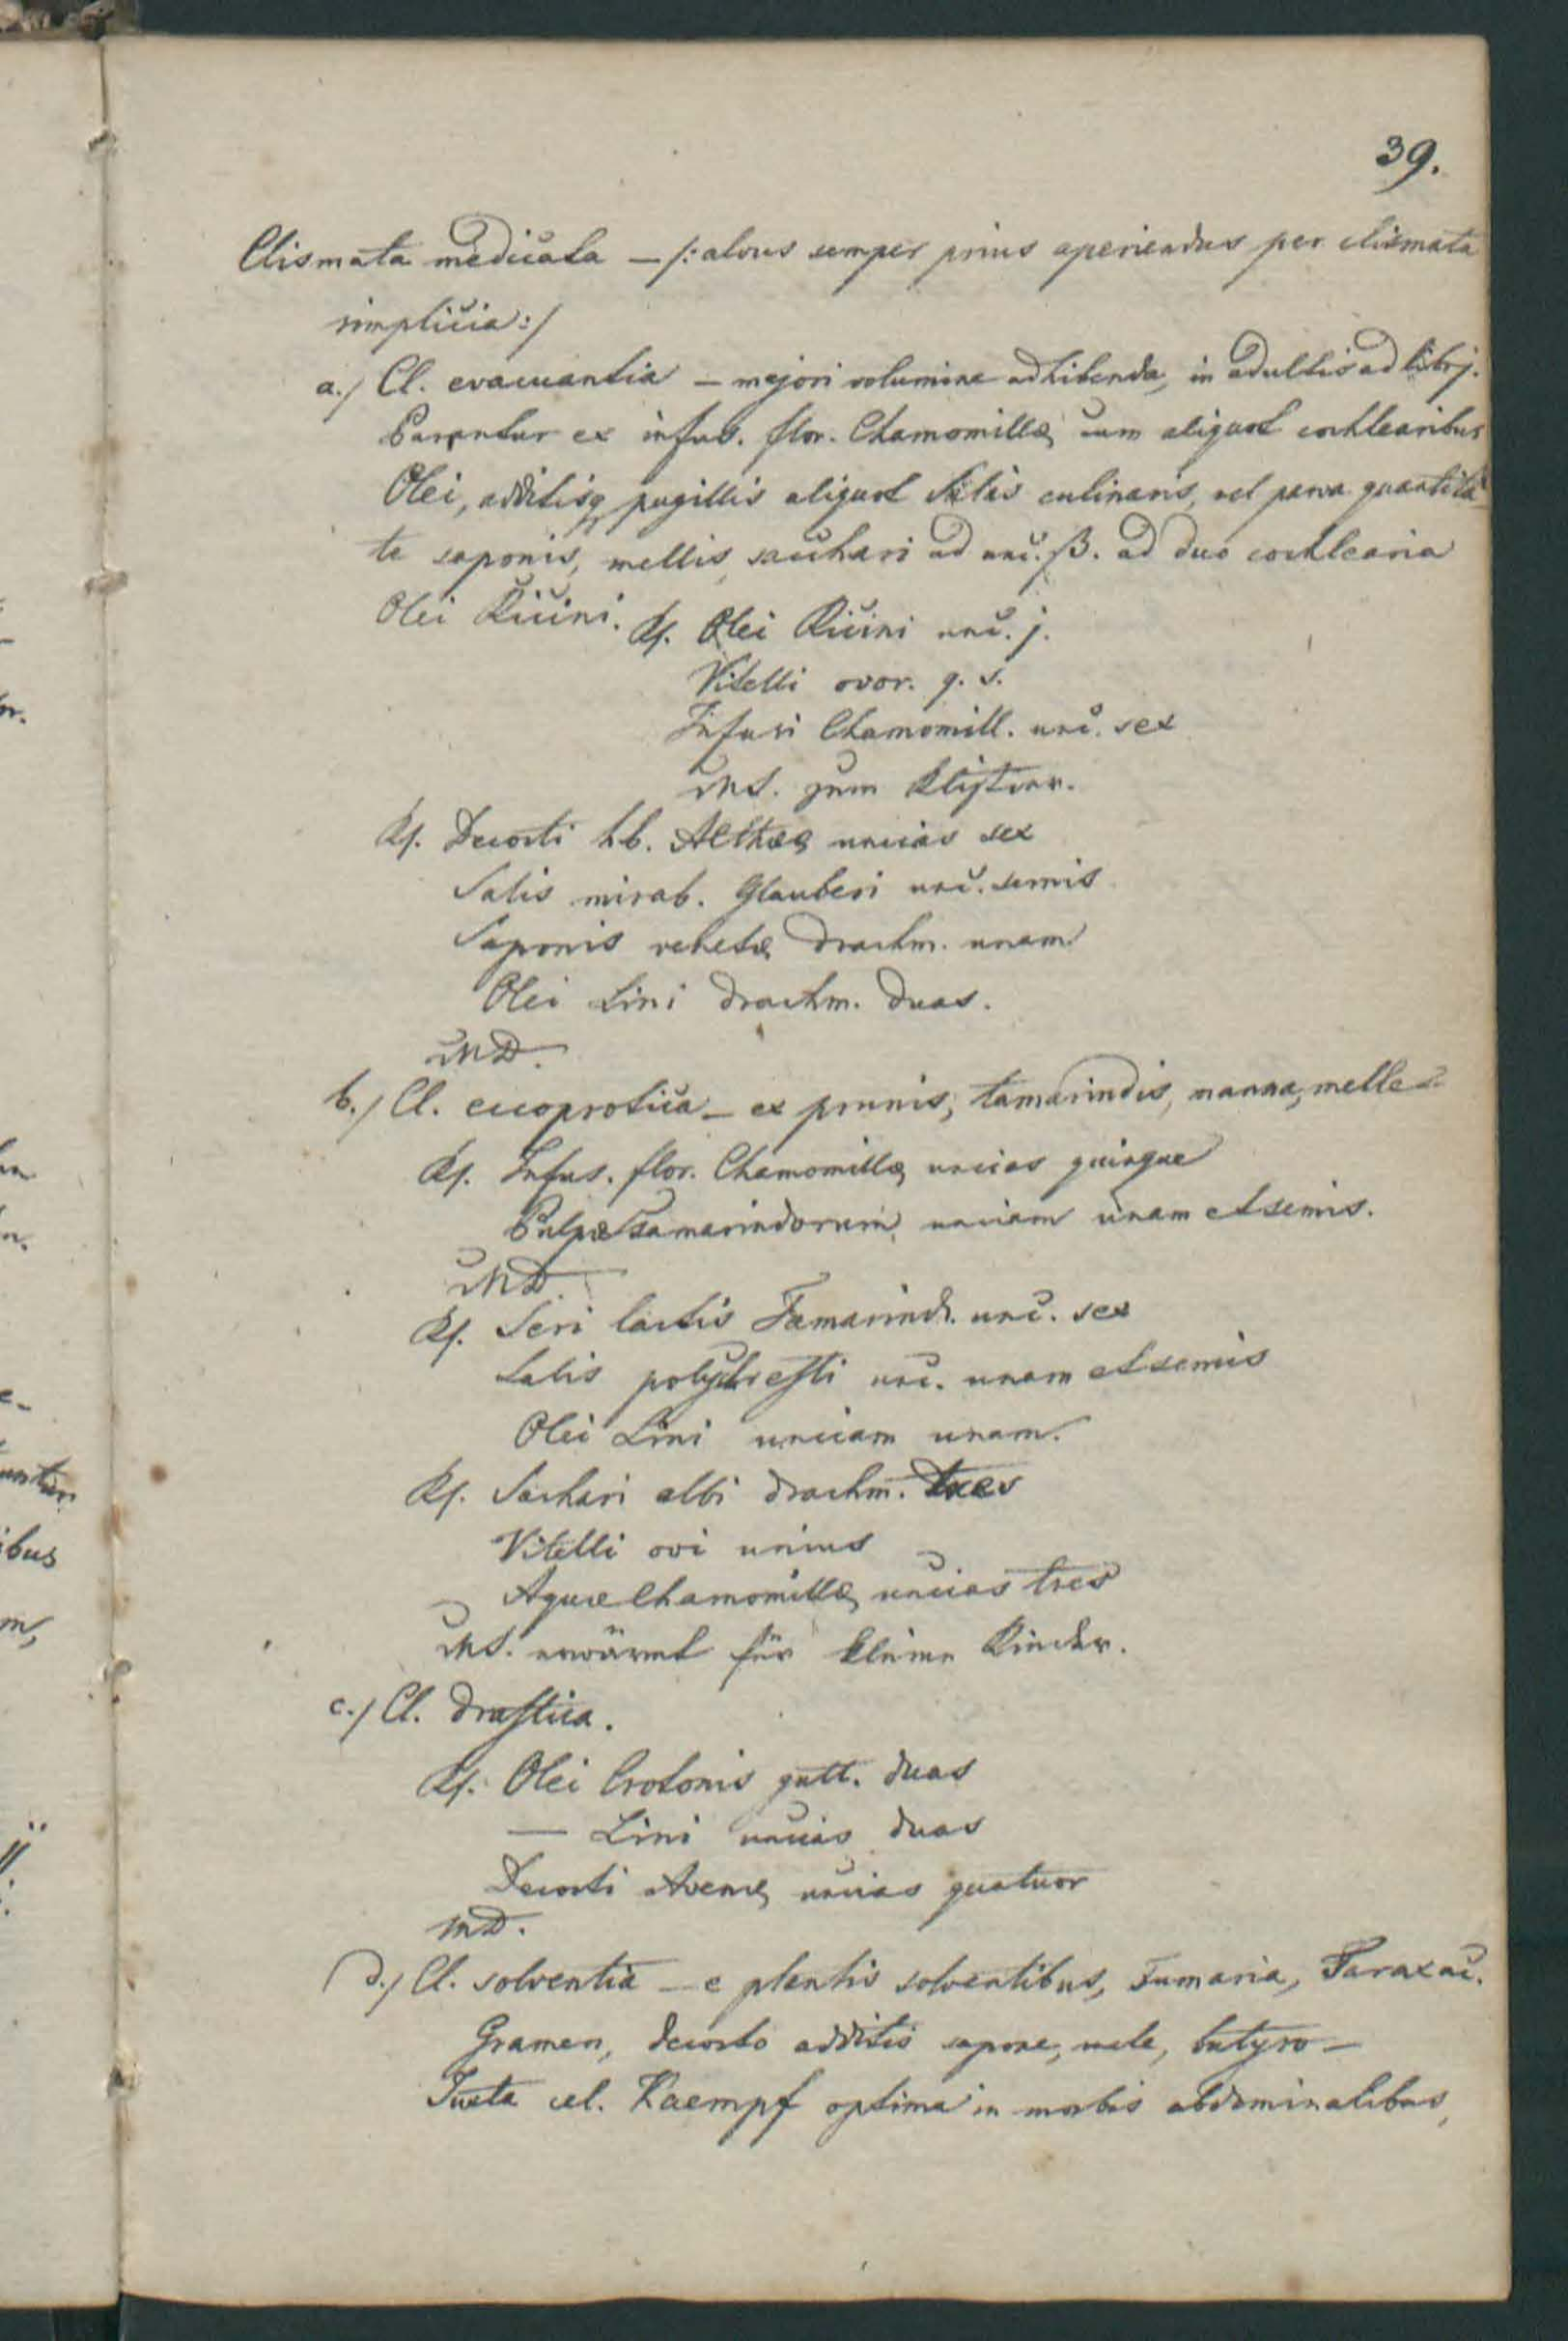 39.
Clismata medicata — /: alvus semper prius aperiendus per clismata
simplicia :/
a./ Cl. evacuantia — majori volumine adhibenda, in adultis ad libr j.
Parantur ex infus. flor. Chamomillæ, cum aliquot cochlearibus
Olei, additisq pugillis aliquot Salis culinaris, vel parva quantita-
te saponis, mellis, sacchari ad unc. ß. ad duo cochlearia
Olei Ricini. Rp. Olei Ricini unc. j.
Vitelli ovor. q. s.
Infusi Chamomill. unc. sex
MS. zum Klistier.
Rp. Decocti hb. Althææ uncias sex
Salis mirab. Glauberi unc. semis
Saponis venetæ drachm. unam
Olei Lini drachm. duas.
MD.
b./ Cl. eccoprotica — ex prunis, tamarindis, manna, melle
Rp. Infus. flor. Chamomillæ uncias quinque
Pulpæ tamarindorum unciam unam et semis.
MD.
Rp. Seri lactis Tamarind. unc. sex
Salis polychresti unc. unam et semis
Olei Lini unciam unam.
Rp. Sachari albi drachm. tres
Vitelli ovi unius
Aquæ Chamomillæ uncias tres
MS. erwärmt für kleine Kinder.
c./ Cl. drastica.
Rp. Olei Crotonis gutt. duas
— Lini uncias duas
Decocti Avenæ uncias quatuor
MD.
d./ Cl. solventia — e plantis solventibus, Fumaria, Taraxac.
Gramen, decocto additis sapone, mele, butyro —
Juxta cel. Kaempf optima in morbis abdominalibus,